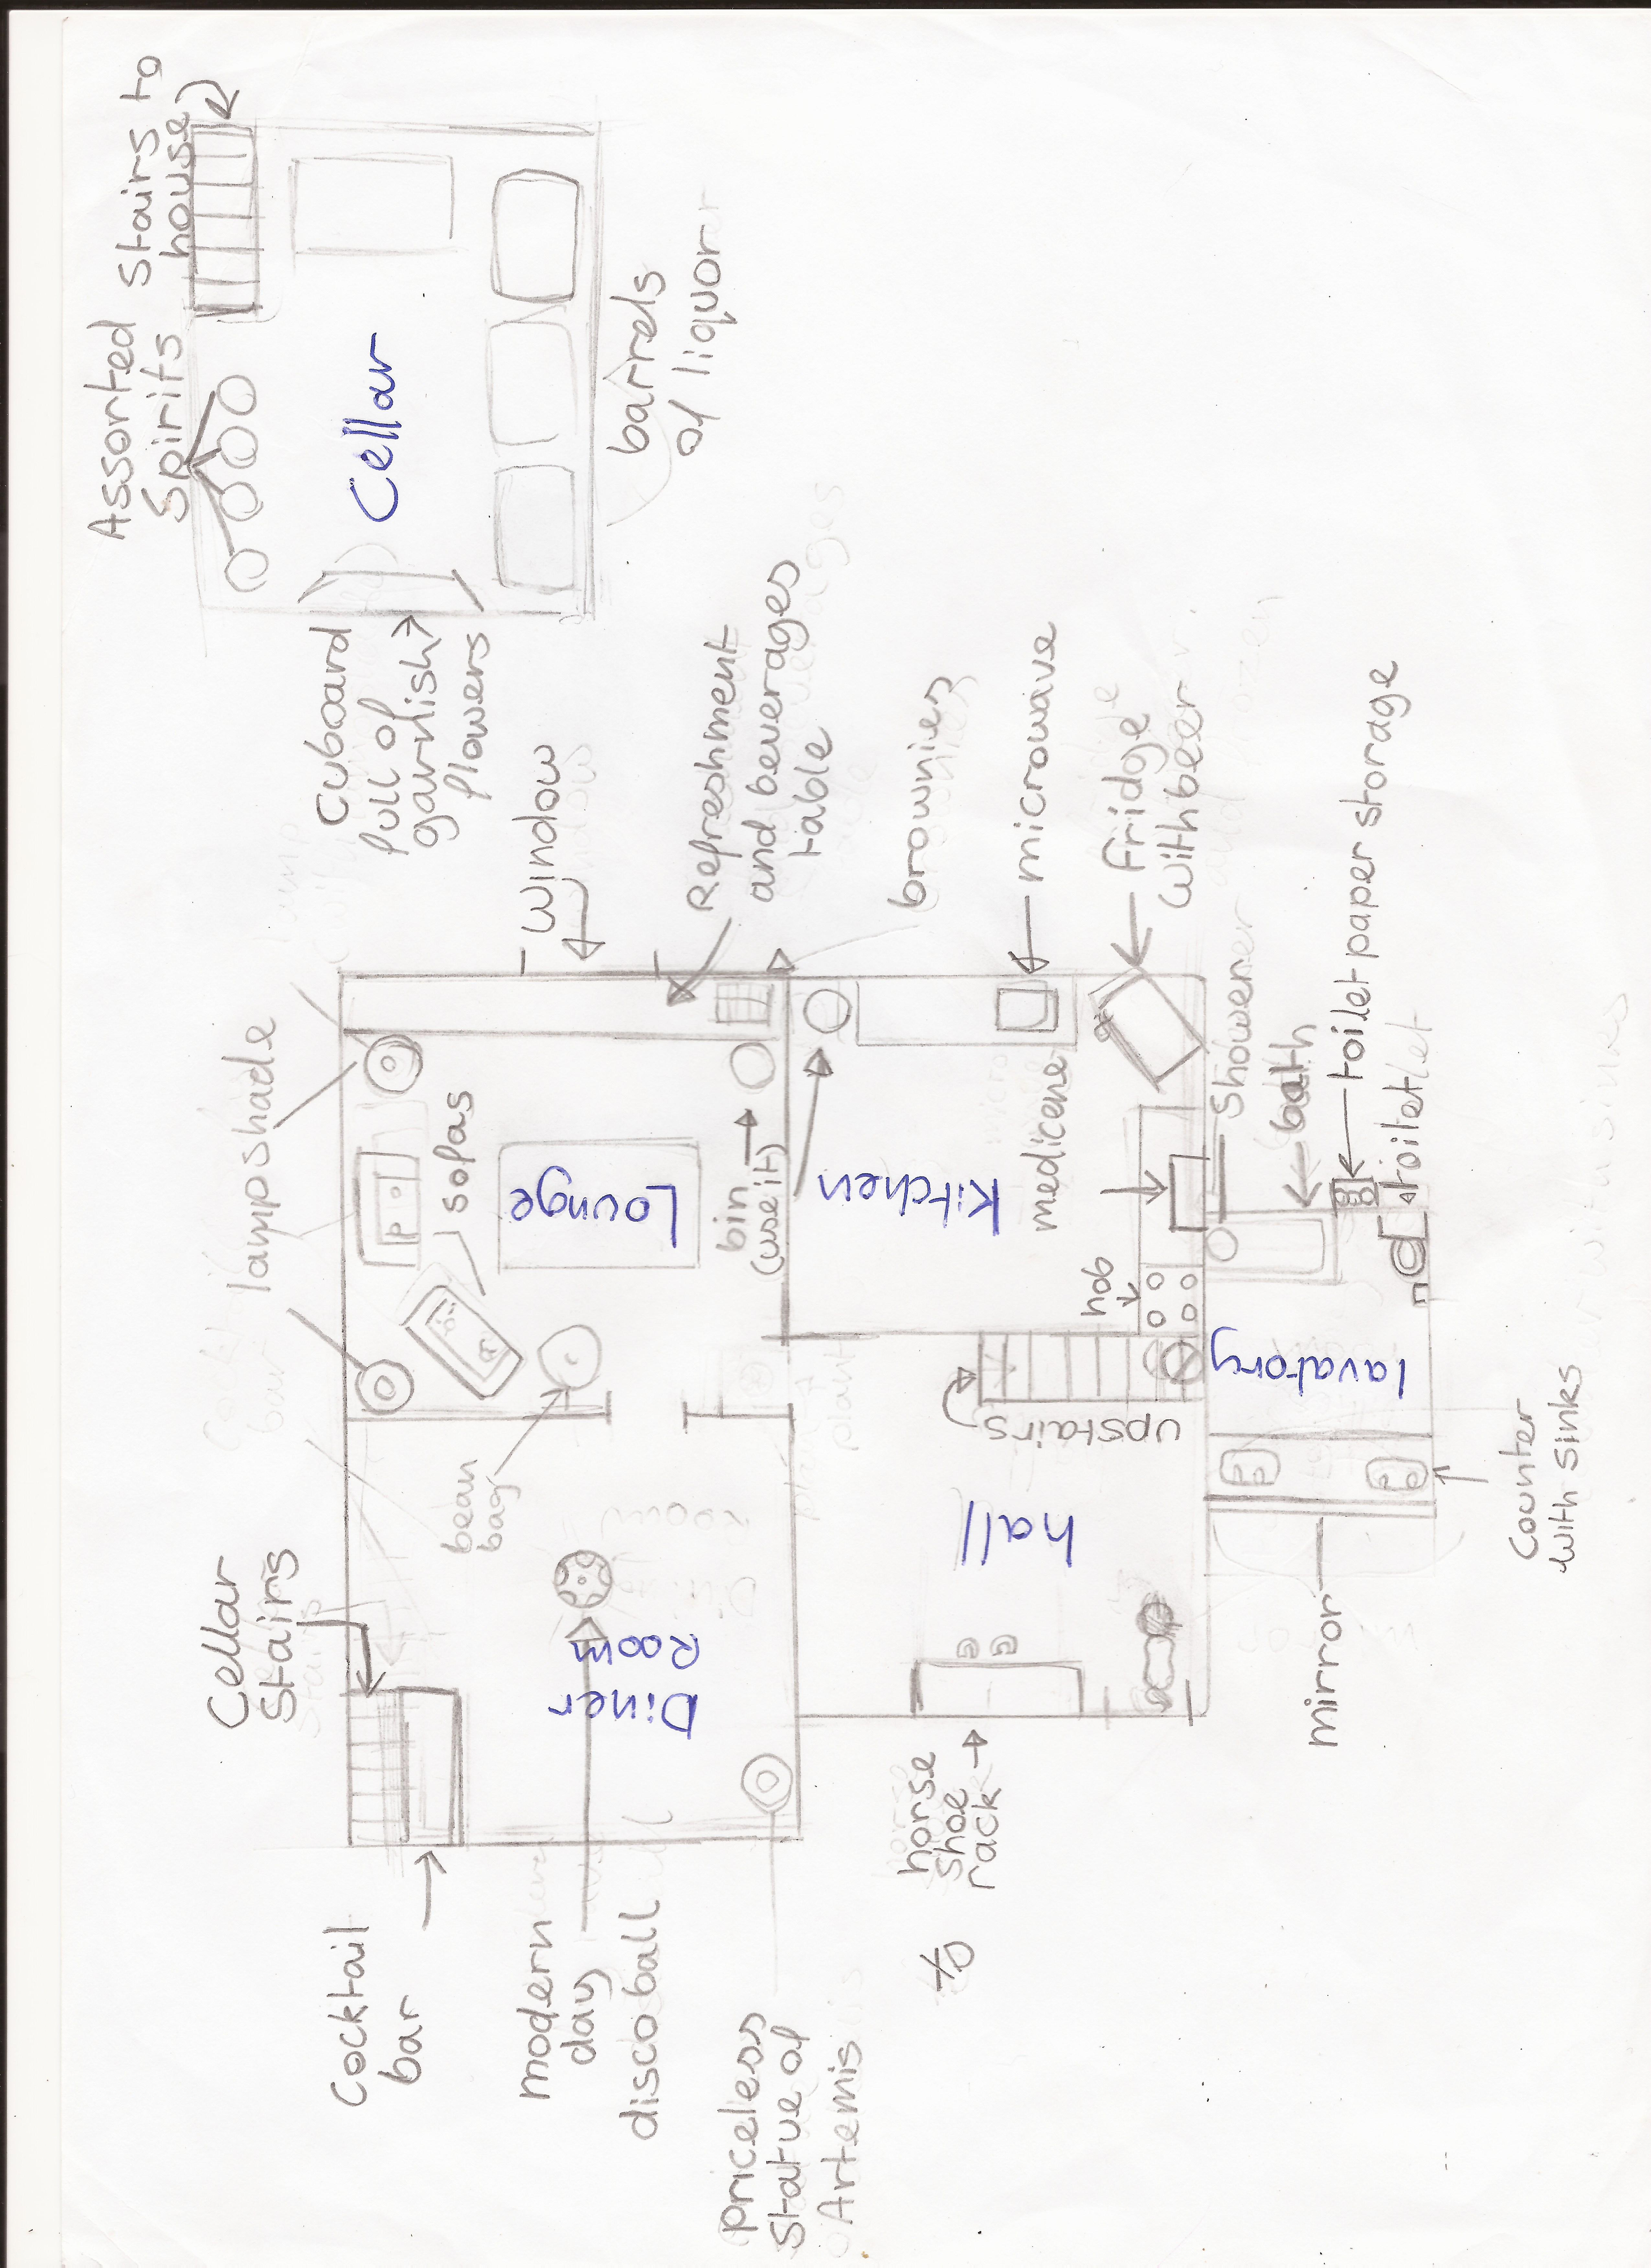 Assorted
Spirits
Stairs to
house
Cellar
barrels
of liquor
Cuboard
full of
garnish
flowers
Window
Refreshment
and beverages
table
brownies
microwave
fridge
with beer
lampshade
sofas
Lounge
bin
(use it)
Kitchen
medicene
hob
shower
bath
toilet paper storage
toilet
lavatory
upstairs
Counter
with sinks
mirror
hall
bean
bag
Cellar
stairs
Diner
Room
Cocktail
bar
modern
day
disco ball
priceless
statue of
Artemis
horse
shoe
rack